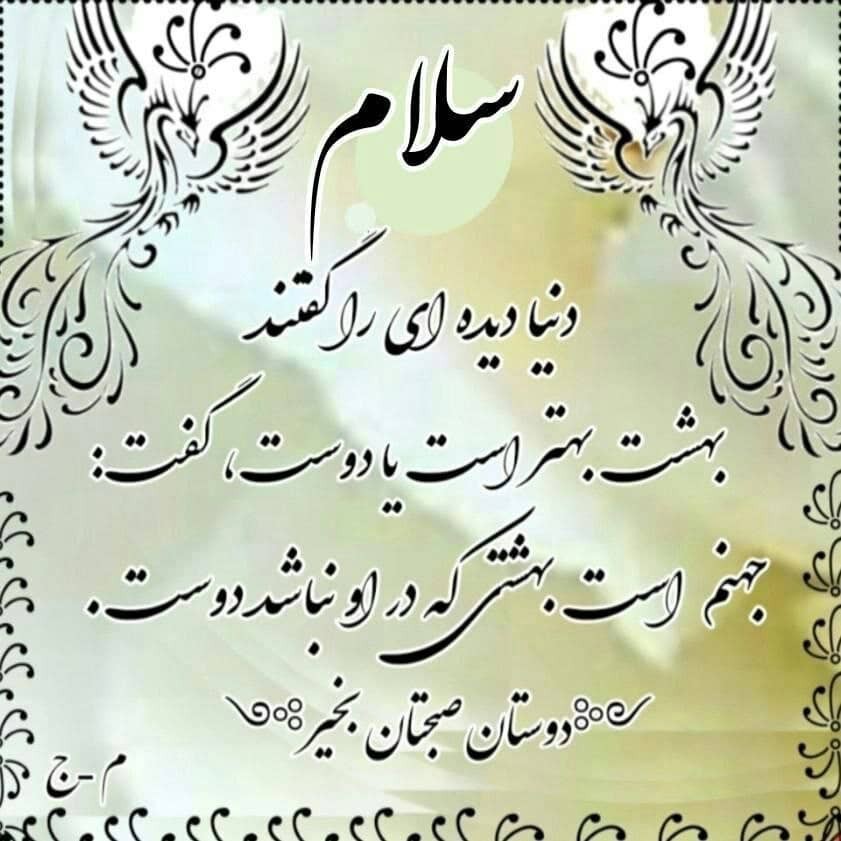 سلام
دنیا دیده ای را گفتند
بهشت بهتر است یا دوست، گفت:
جهنم است بهشتی که در او نباشد دوست.
دوستان صبحتان بخیر
م-ج